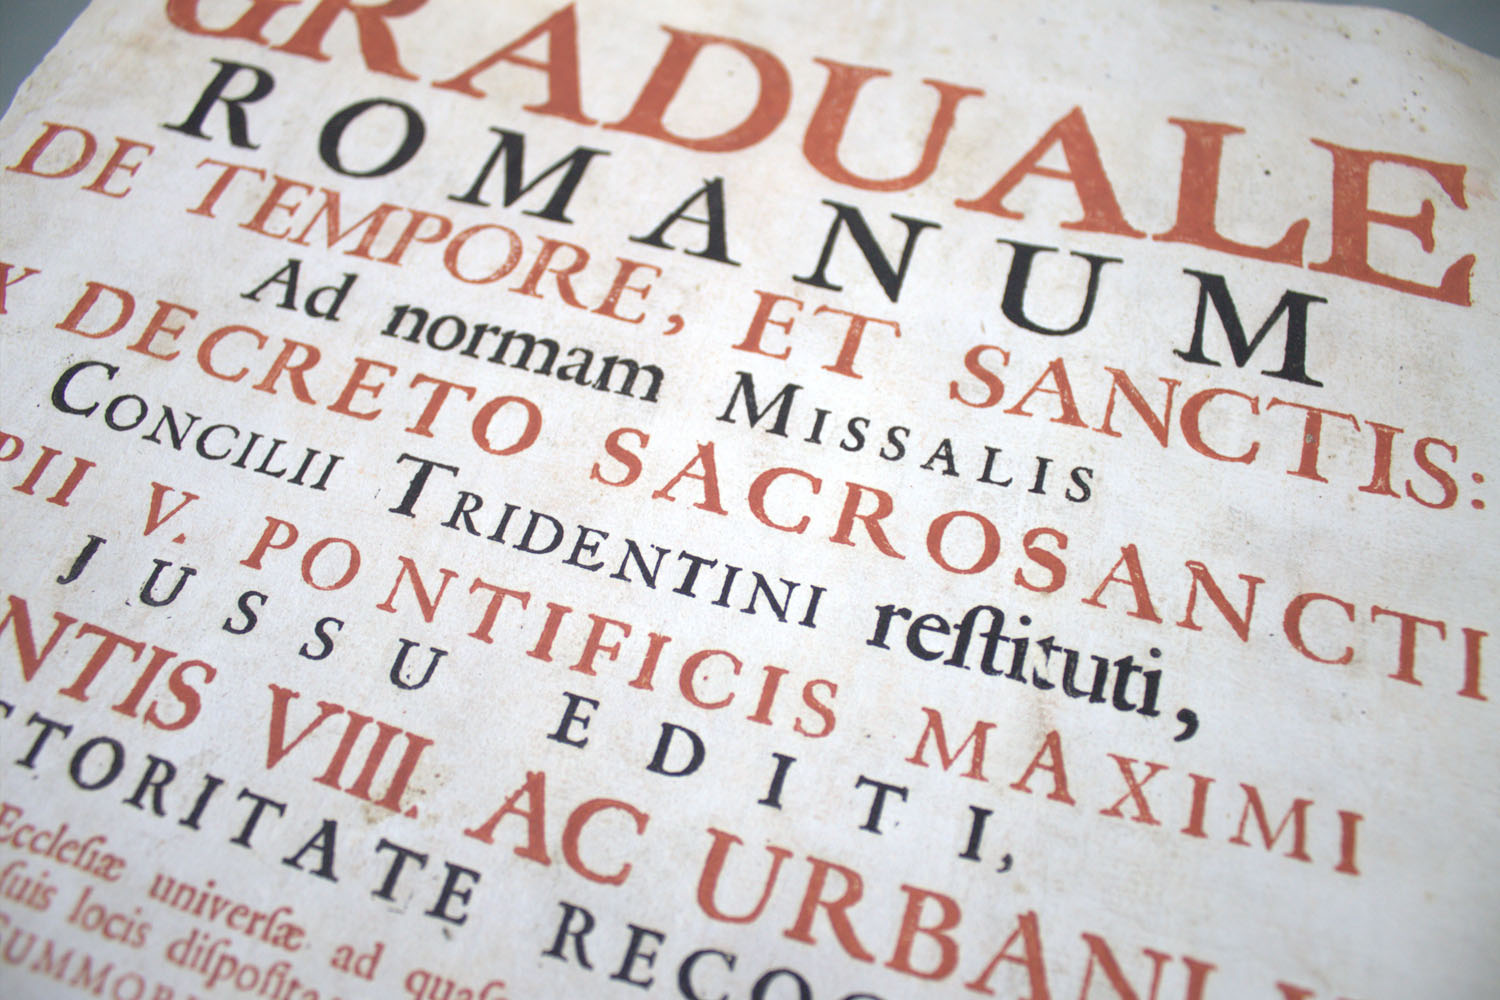 GRADUALE
ROMANUM
DE TEMPORE, ET SANCTIS:
Ad normam MISSALIS
X DECRETO SACROSANCTI
CONCILII TRIDENTINI reſtituti,
PII V. PONTIFICIS MAXIMI
JUSSU EDITI,
NTIS VIII. AC URBANI
CTORITATE RECOG
Eccleſiæ univerſæ ad quaſ
ſuis locis diſpoſita
SUMMOR